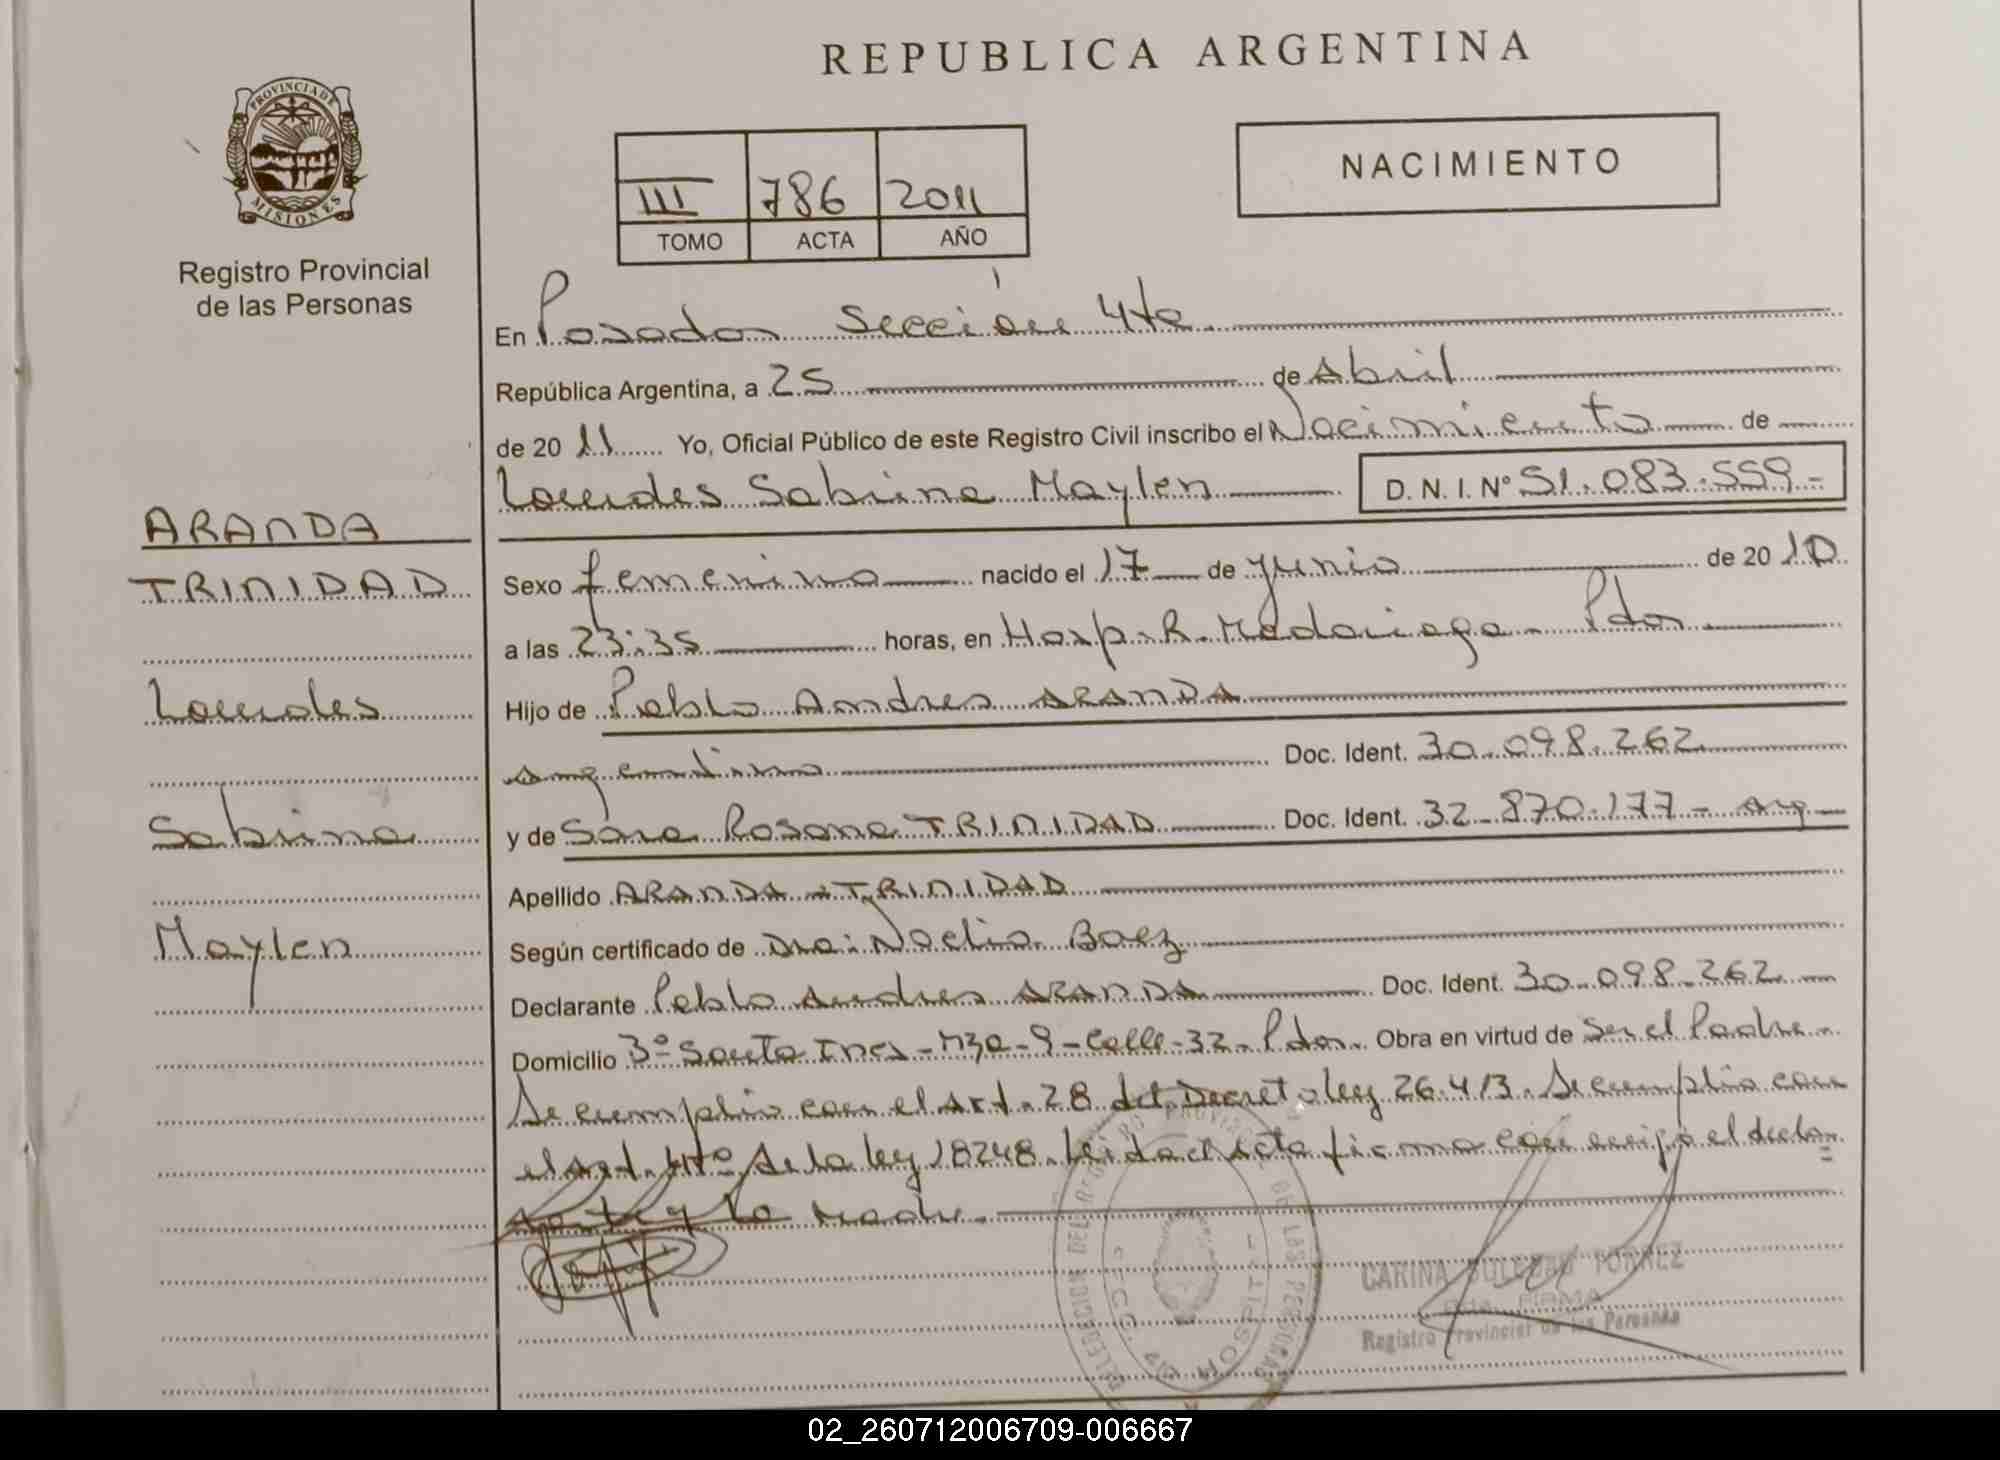 REPUBLICA ARGENTINA
PROVINCIA DE
MISIONES
Registro Provincial
de las Personas
NACIMIENTO
III 786 2011
TOMO ACTA AÑO
En Posadas Sección 4ta
República Argentina, a 25 de Abril
de 2011 Yo, Oficial Público de este Registro Civil inscribo el Nacimiento de
Lourdes Sabrina Maylen D. N. I. Nº 51.083.559-
ARANDA
TRINIDAD
Lourdes
Sabrina
Maylen
Sexo femenino nacido el 17 de Junio de 2010
a las 23:35 horas, en Hosp. R. Madariaga - Pdas
Hijo de Pablo Andres ARANDA
argentino Doc. Ident. 30.098.262
y de Sara Rosana TRINIDAD Doc. Ident. 32.870.177- Arg
Apellido ARANDA - TRINIDAD
Según certificado de Dra: Noelia Baez
Declarante Pablo Andres ARANDA Doc. Ident. 30.098.262
Domicilio 3º Santa Ines - Mza - 9 - Calle - 32 - Pdas. Obra en virtud de Ser el Padre.
Se cumplio con el Art. 28 del Decreto ley 26.413. Se cumplio con
el Art. 4to de la ley 18248. Leida el Acta firma con migo el decla=
rante y la Madre.
DELEGACION DEL REGISTRO PROVINCIAL DE LAS PERSONAS
CARINA SOLEDAD TORREZ
FIRMA
Registro Provincial de las Personas
02_260712006709-006667